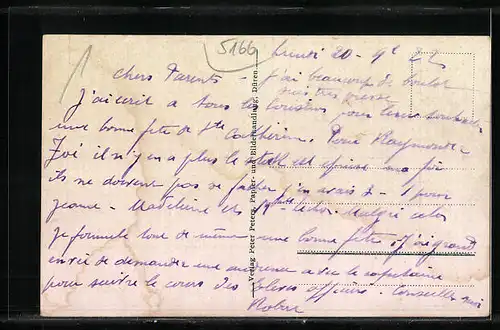 5166
Lundi 20-9e 22
Chers Parents - J'ai beaucoup de boulot
suis très pressé
J'ai écrit à tous les Cousins pour leur souhaiter
une bonne fête de Ste Catherine. Pour Raymonde
J'oi il n'y en a plus le stock est épuisé ma foi
ils ne doivent pas se fâcher j'en avais 2 - 1 pour
Jeanne - Madeleine et Malgré cela
je formule tout de même une bonne fête. J'ai grand
envie de demander une audience à de le capitaine
pour suivre le cours des élèves officiers. Conseillez moi
Robert
Verlag: Peter Peters, Papier- und Bilderhandlung, Düren.